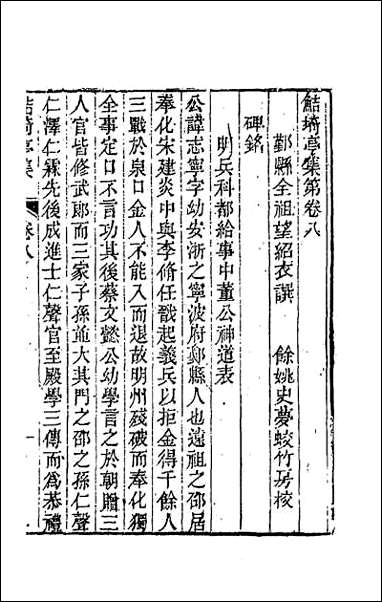 鮚埼亭集第卷八
鄞縣全祖望紹衣譔　餘姚史夢蛟竹房校
碑銘
明兵科都給事中董公神道表
公諱志寧字幼安浙之寧波府鄞縣人也遠祖之邵居
奉化宋建炎中與李脩任戩起義兵以拒金得千餘人
三戰於泉口金人不能入而退故明州殘破而奉化獨
全事定口不言功其後蔡文懿公幼學言之於朝贈三
人官皆修武郎而三家子孫並大其門之邵之孫仁聲
仁澤仁霖先後成進士仁聲官至殿學三傳而為恭禮
鮚埼亭集
卷八
一